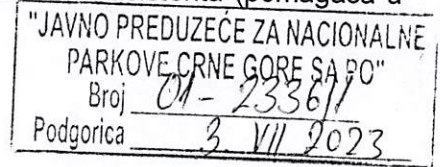 (pomagača u
"JAVNO PREDUZEĆE ZA NACIONALNE
PARKOVE CRNE GORE SA PO"
Broj 01-2336/1
Podgorica 3. VII 2023